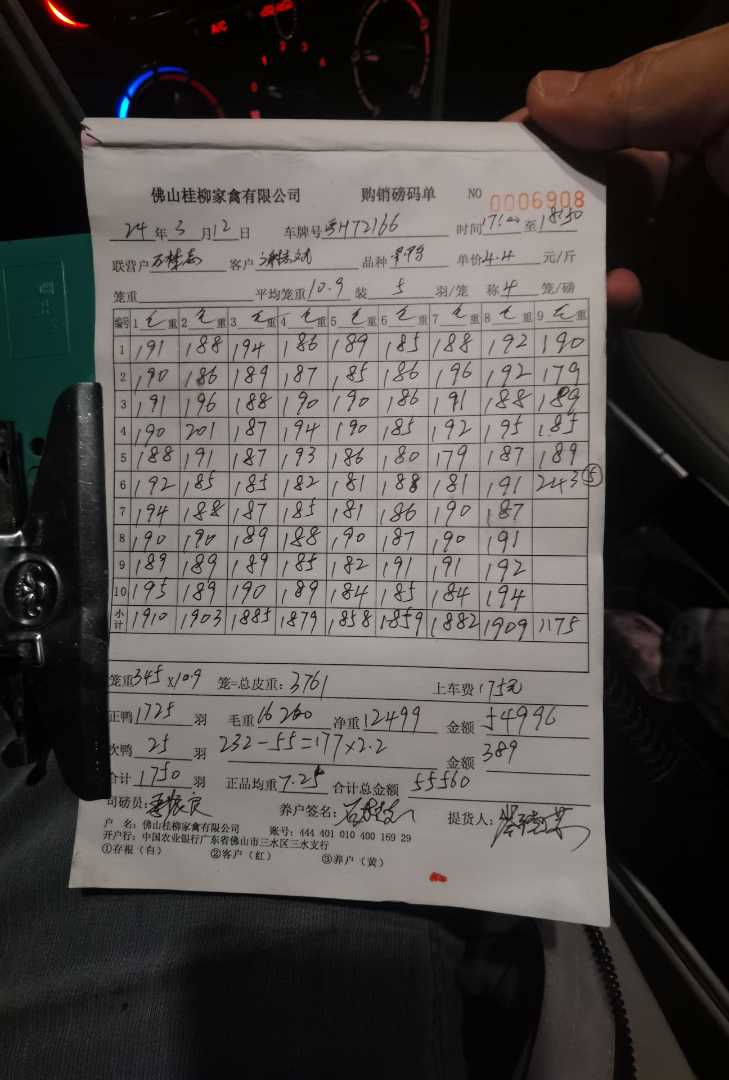 AC
佛山桂柳家禽有限公司 购销磅码单 NO 0006908
24 年 3 月 12 日 车牌号 粤H72166 时间 17:00 至 18:50
联营户 客户 品种 单价 4.4 元/斤
笼重 平均笼重 10.9 装 5 羽/笼 称 4 笼/磅
编号 1 毛 重 2 毛 重 3 毛 重 4 毛 重 5 毛 重 6 毛 重 7 毛 重 8 毛 重 9 毛 重
1 191 188 194 186 189 185 188 192 190
2 190 186 189 187 185 186 196 192 179
3 191 196 188 190 190 186 191 188 189
4 190 201 187 194 190 185 192 195 185
5 188 191 187 193 186 180 179 187 189
6 192 185 185 182 181 188 181 191 243 ⑤
7 194 188 187 185 181 186 190 187
8 190 190 189 188 190 187 190 191
9 189 189 189 185 182 191 191 192
10 195 189 190 189 184 185 184 194
小计 1910 1903 1885 1879 1858 1859 1882 1909 1175
笼重 345 x10.9 笼=总皮重: 3761 上车费: 175元
正鸭 1725 羽 毛重 16260 净重 12499 金额 54996
次鸭 25 羽 232-55=177×2.2 金额 389
合计 1750 羽 正品均重 7.25 合计总金额 55560
司磅员: 养户签名: 提货人:
户 名: 佛山桂柳家禽有限公司 账号: 444 401 010 400 169 29
开户行: 中国农业银行广东省佛山市三水区三水支行
①存根(白) ②客户(红) ③养户(黄)